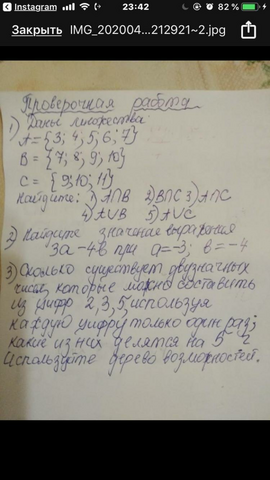 Instagram 23:42 82 %
Закрыть IMG_202004...212921~2.jpg
Проверочная работа
1) Даны множества
A = {3; 4; 5; 6; 7}
B = {7; 8; 9; 10}
C = {9; 10; 11}
Найдите: 1) A∩B 2) B∩C 3) A∩C
4) A∪B 5) A∪C
2) Найдите значение выражения
3a-4b при a=-3; b=-4
3) Сколько существует двузначных
чисел, которые можно составить
из цифр 2, 3, 5, используя
каждую цифру только один раз;
какие из них делятся на 5
Используйте дерево возможностей.